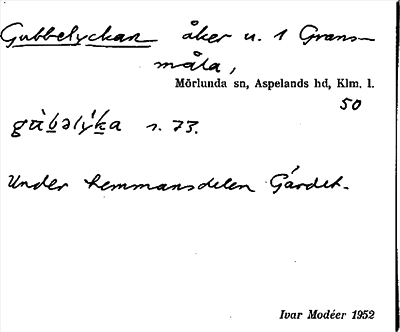 Gubbelyckan åker u. 1 Grans-
måla,
Mörlunda sn, Aspelands hd, Klm. l.
50
s. 73.
Under hemmansdelen Gärdet.
Ivar Modéer 1952